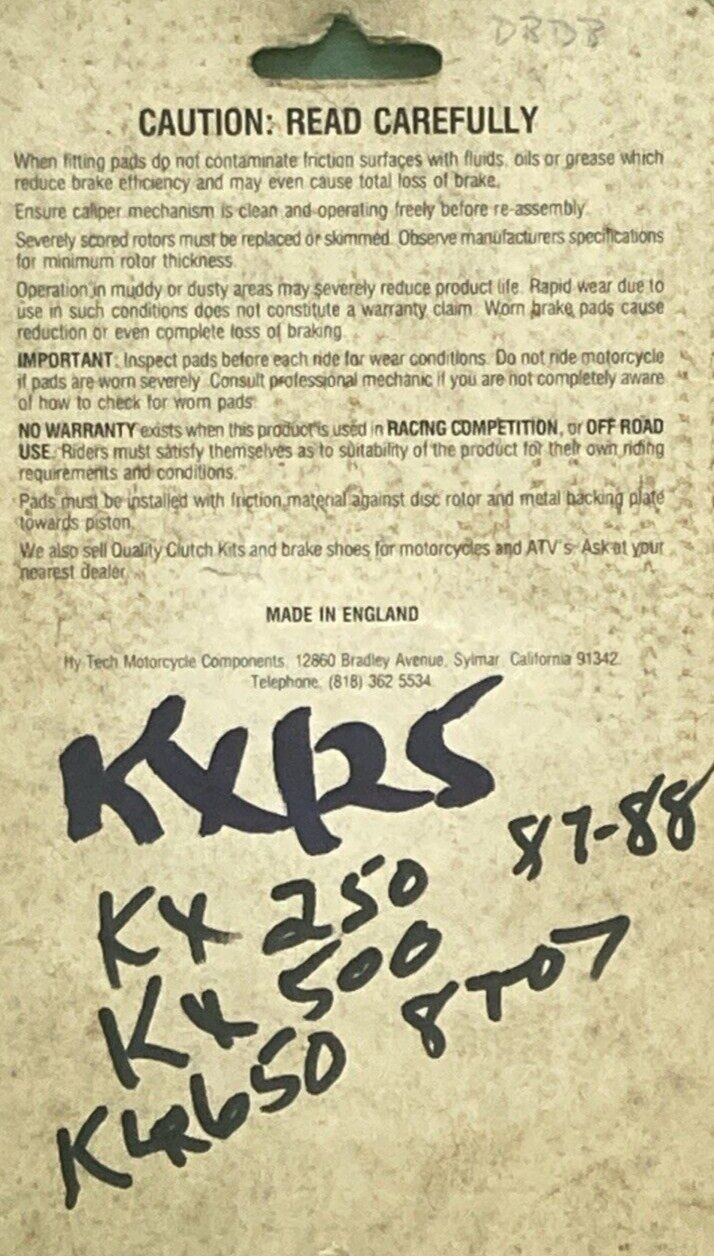 DBDB
CAUTION: READ CAREFULLY
When fitting pads do not contaminate friction surfaces with fluids, oils or grease which
reduce brake efficiency and may even cause total loss of brake.
Ensure caliper mechanism is clean and operating freely before re-assembly.
Severely scored rotors must be replaced or skimmed. Observe manufacturers specifications
for minimum rotor thickness.
Operation in muddy or dusty areas may severely reduce product life. Rapid wear due to
use in such conditions does not constitute a warranty claim. Worn brake pads cause
reduction or even complete loss of braking.
IMPORTANT: Inspect pads before each ride for wear conditions. Do not ride motorcycle
if pads are worn severely. Consult professional mechanic if you are not completely aware
of how to check for worn pads.
NO WARRANTY exists when this product is used in RACING COMPETITION, or OFF ROAD
USE. Riders must satisfy themselves as to suitability of the product for their own riding
requirements and conditions.
Pads must be installed with friction material against disc rotor and metal backing plate
towards piston.
We also sell Quality Clutch Kits and brake shoes for motorcycles and ATV's. Ask at your
nearest dealer.
MADE IN ENGLAND
Hy Tech Motorcycle Components. 12860 Bradley Avenue, Sylmar, California 91342.
Telephone. (818) 362 5534.
KX125
KX 250 87-88
KX 500
KLR650 8TO7